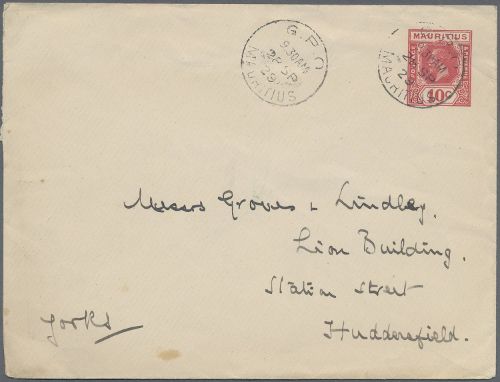 G.P.O
9.30AM
SP
29
MAURITIUS
MAURITIUS
10C
MAURITIUS
29
Messrs Groves & Lindley,
Lion Building,
Station Street
Huddersfield.
Yorks